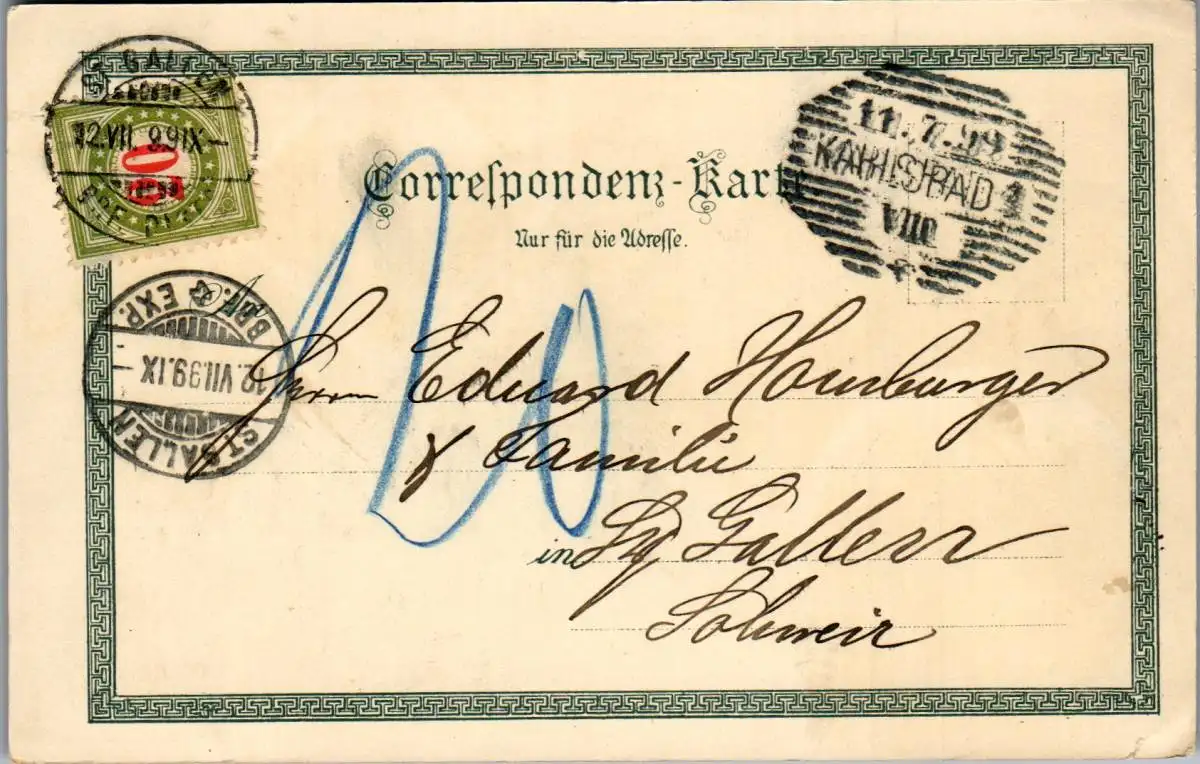 ST. GALLEN
12.VII.99.IX-
BRF. DI
20
11.7.99
KARLSBAD 1
VIII
Correſpondenz-Karte
Nur für die Adreſſe.
20
BRF. & EXP.
12.VII.99.IX
ST. GALLEN
Herrn Eduard Homburger
& Familie
in St Gallen
Schweiz